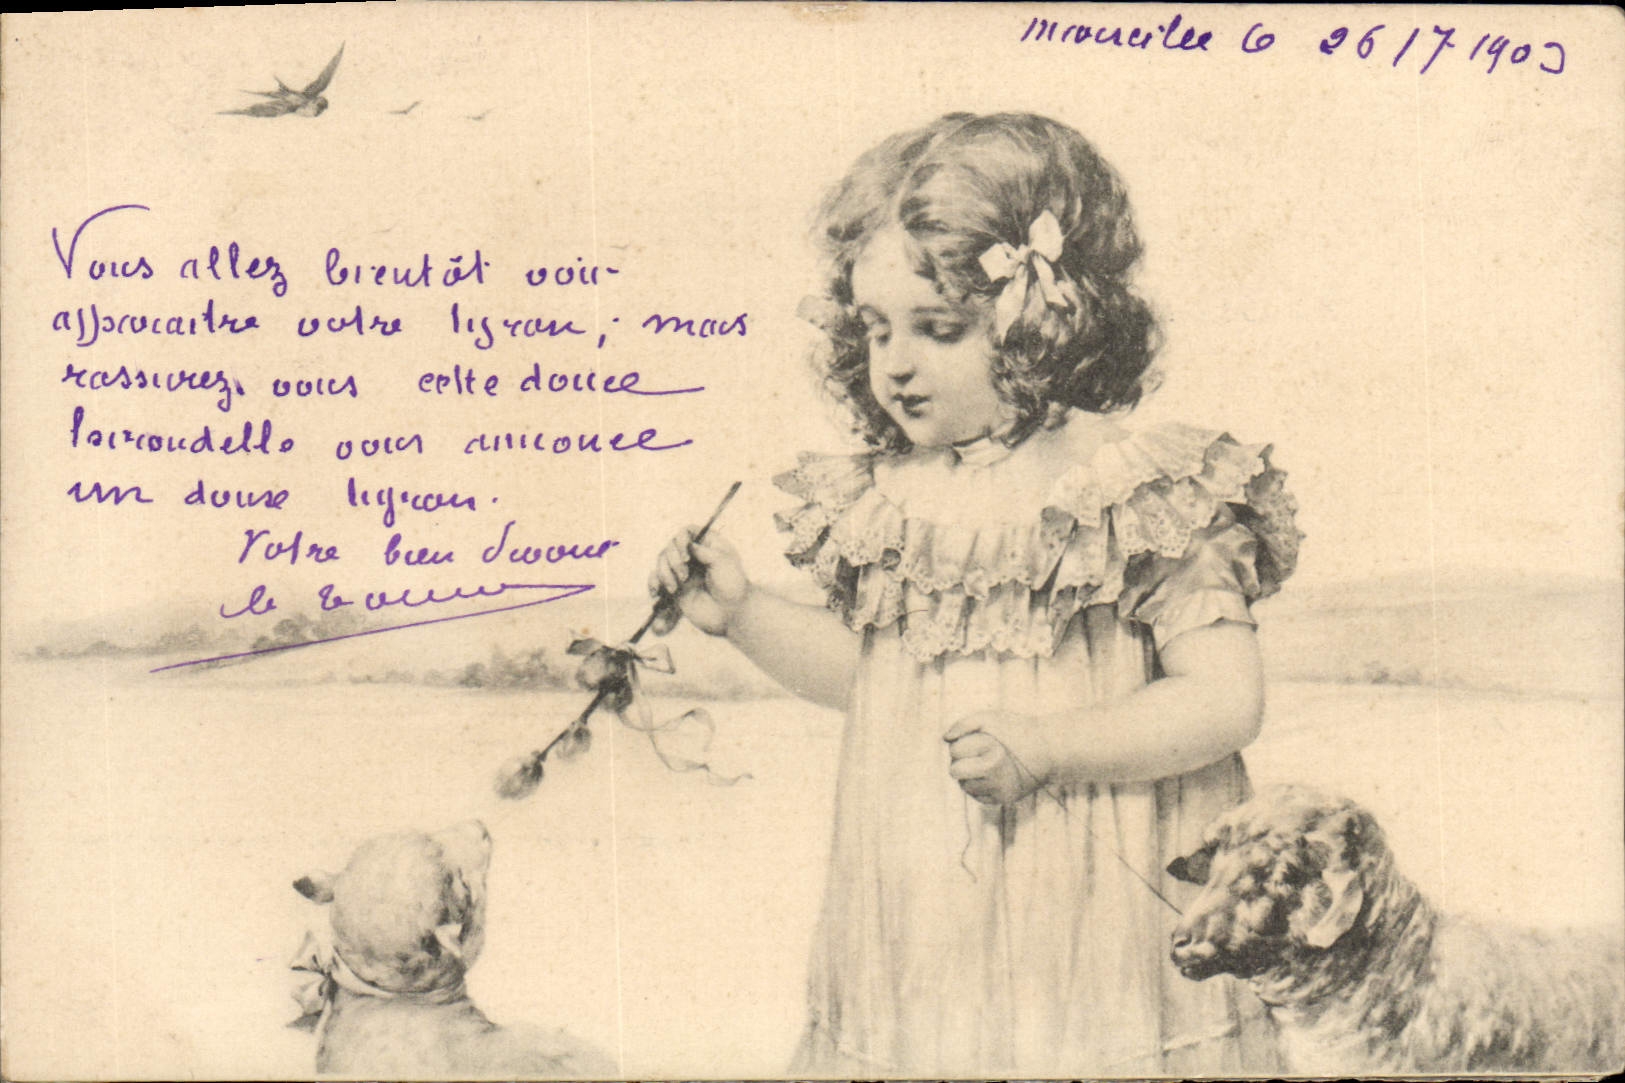 Marseille le 26/7 1903
Vous allez bientôt voir
apparaitre votre tyran; mais
rassurez-vous cette douce
hirondelle vous annonce
un doux tyran.
Votre bien dévoué
le